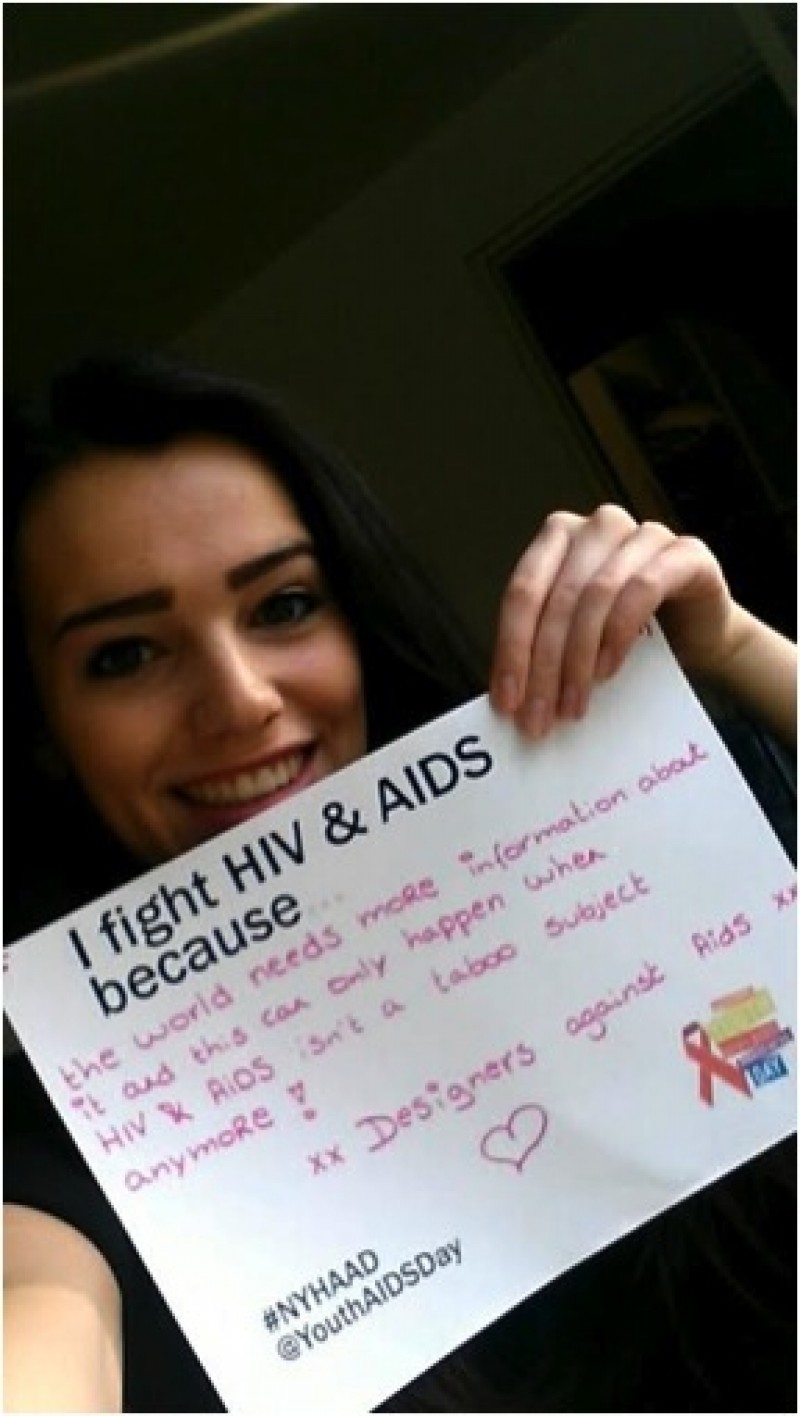 I fight HIV & AIDS
because...
the world needs more information about
it and this can only happen when
HIV & AiDS isn't a taboo subject
anymore!
xx Designers against Aids xx
#NYHAAD
@YouthAIDSDay
DAY